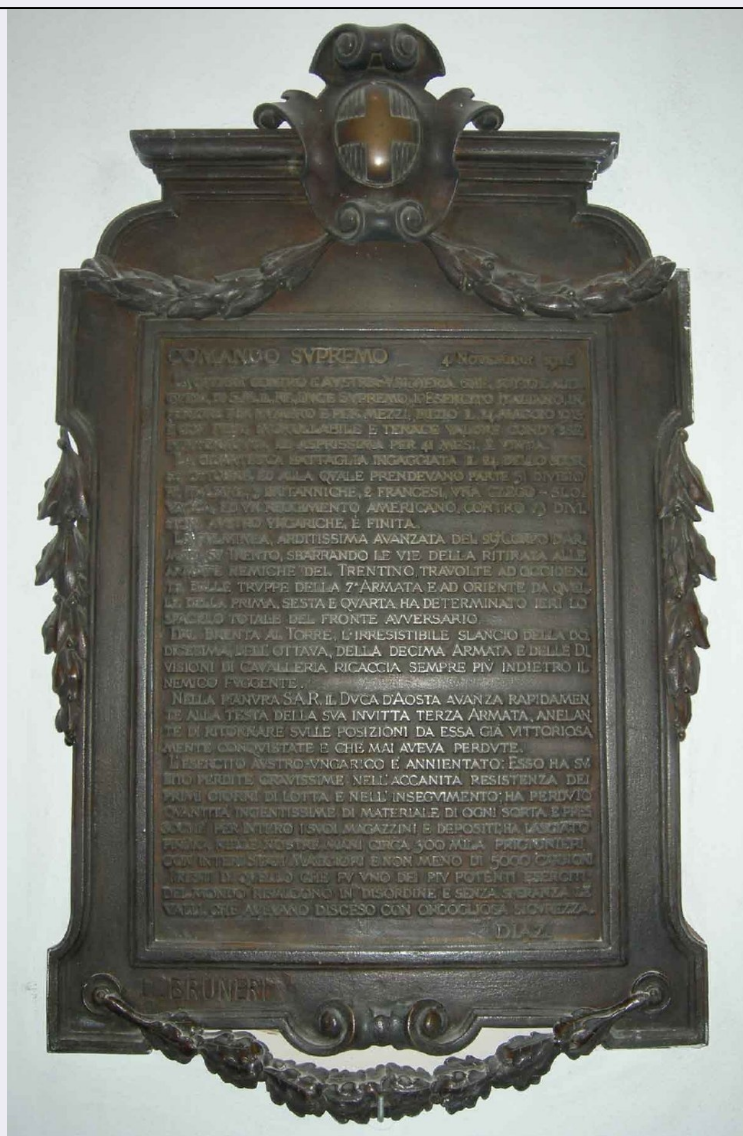 COMANDO SVPREMO 4 NOVEMBRE 1918
LA GVERRA CONTRO L'AVSTRIA-VNGHERIA CHE, SOTTO L'ALTA
GVIDA DI S.M. IL RE, DVCE SVPREMO, L'ESERCITO ITALIANO, IN
FERIORE PER NVMERO E PER MEZZI, INIZIÒ IL 24 MAGGIO 1915
E CON FEDE INCROLLABILE E TENACE VALORE CONDVSSE
ININTERROTTA ED ASPRISSIMA PER 41 MESI, È VINTA.
LA GIGANTESCA BATTAGLIA INGAGGIATA IL 24 DELLO SCOR
SO OTTOBRE ED ALLA QVALE PRENDEVANO PARTE 51 DIVISIO
NI ITALIANE, 3 BRITANNICHE, 2 FRANCESI, VNA CZECO-SLO
VACCA, ED VN REGGIMENTO AMERICANO, CONTRO 73 DIVI
SIONI AVSTRO VNGARICHE, È FINITA.
LA FVLMINEA, ARDITISSIMA AVANZATA DEL 29° CORPO D'AR
MATA SV TRENTO, SBARRANDO LE VIE DELLA RITIRATA ALLE
ARMATE NEMICHE DEL TRENTINO, TRAVOLTE AD OCCIDEN
TE DALLE TRVPPE DELLA 7ª ARMATA E AD ORIENTE DA QVEL
LE DELLA PRIMA, SESTA E QVARTA HA DETERMINATO IERI LO
SFACELO TOTALE DEL FRONTE AVVERSARIO.
DAL BRENTA AL TORRE, L'IRRESISTIBILE SLANCIO DELLA DO
DICESIMA, DELL'OTTAVA, DELLA DECIMA ARMATA E DELLE DI
VISIONI DI CAVALLERIA, RICACCIA SEMPRE PIV INDIETRO IL
NEMICO FVGGENTE.
NELLA PIANVRA S.A.R. IL DVCA D'AOSTA AVANZA RAPIDAMEN
TE ALLA TESTA DELLA SVA INVITTA TERZA ARMATA, ANELAN
TE DI RITORNARE SVLLE POSIZIONI DA ESSA GIÀ VITTORIOSA
MENTE CONQVISTATE E CHE MAI AVEVA PERDVTE.
L'ESERCITO AVSTRO-VNGARICO È ANNIENTATO: ESSO HA SV
BITO PERDITE GRAVISSIME NELL'ACCANITA RESISTENZA DEI
PRIMI GIORNI DI LOTTA E NELL'INSEGVIMENTO; HA PERDVTO
QVANTITÀ INGENTISSIME DI MATERIALE DI OGNI SORTA E PRES
SOCHÉ PER INTERO I SVOI MAGAZZINI E DEPOSITI; HA LASCIATO
FINORA NELLE NOSTRE MANI CIRCA 300 MILA PRIGIONIERI
CON INTERI STATI MAGGIORI E NON MENO DI 5000 CANNONI
I RESTI DI QVELLO CHE FV VNO DEI PIV POTENTI ESERCITI
DEL MONDO RISALGONO IN DISORDINE E SENZA SPERANZA LE
VALLI, CHE AVEVANO DISCESO CON ORGOGLIOSA SICVREZZA.
DIAZ
BRUNERI